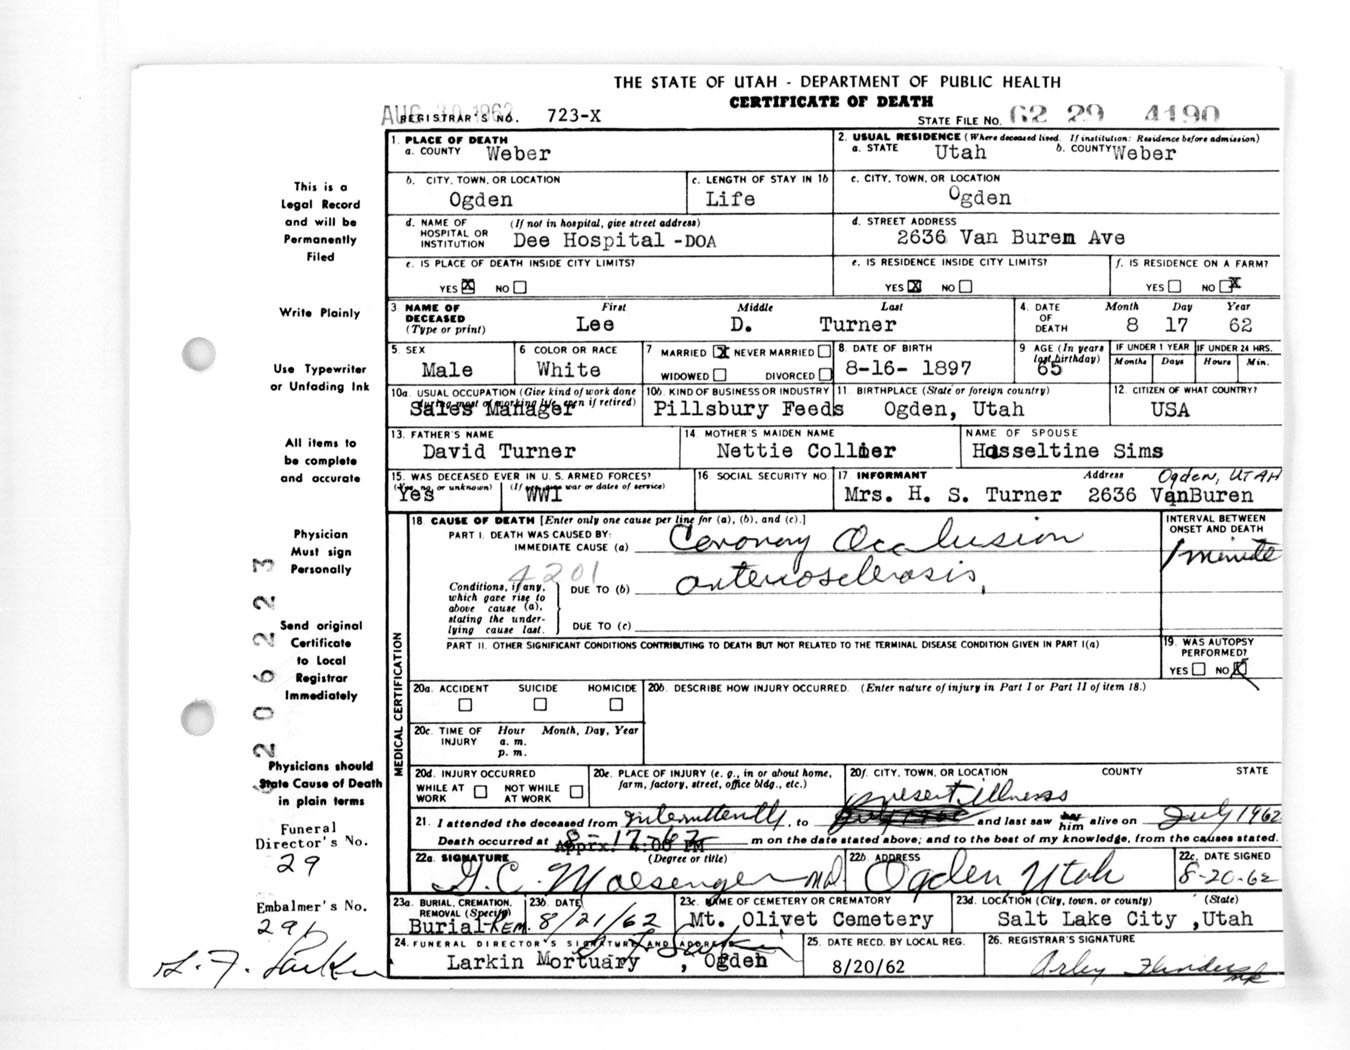 THE STATE OF UTAH - DEPARTMENT OF PUBLIC HEALTH
CERTIFICATE OF DEATH
AUG 30 1962
REGISTRAR'S NO. 723-X
STATE FILE NO. 62 29 4190
This is a
Legal Record
and will be
Permanently
Filed
Write Plainly
Use Typewriter
or Unfading Ink
All items to
be complete
and accurate
Physician
Must sign
Personally
Send original
Certificate
to Local
Registrar
Immediately
Physicians should
State Cause of Death
in plain terms
Funeral
Director's No.
29
Embalmer's No.
296
2062223
1. PLACE OF DEATH
a. COUNTY Weber
2. USUAL RESIDENCE (Where deceased lived. If institution: Residence before admission)
a. STATE Utah b. COUNTY Weber
b. CITY, TOWN, OR LOCATION
Ogden
c. LENGTH OF STAY IN 1b
Life
c. CITY, TOWN, OR LOCATION
Ogden
d. NAME OF HOSPITAL OR INSTITUTION (If not in hospital, give street address)
Dee Hospital -DOA
d. STREET ADDRESS
2636 Van Buren Ave
e. IS PLACE OF DEATH INSIDE CITY LIMITS?
YES X NO
e. IS RESIDENCE INSIDE CITY LIMITS?
YES X NO
f. IS RESIDENCE ON A FARM?
YES NO X
3. NAME OF DECEASED (Type or print)
First Middle Last
Lee D. Turner
4. DATE OF DEATH
Month Day Year
8 17 62
5. SEX
Male
6 COLOR OR RACE
White
7 MARRIED X NEVER MARRIED
WIDOWED DIVORCED
8. DATE OF BIRTH
8-16- 1897
9 AGE (In years last birthday)
65
IF UNDER 1 YEAR
Months Days
IF UNDER 24 HRS.
Hours Min.
10a. USUAL OCCUPATION (Give kind of work done during most of working life, even if retired)
Sales Manager
10b. KIND OF BUSINESS OR INDUSTRY
Pillsbury Feeds
11. BIRTHPLACE (State or foreign country)
Ogden, Utah
12. CITIZEN OF WHAT COUNTRY?
USA
13. FATHER'S NAME
David Turner
14 MOTHER'S MAIDEN NAME
Nettie Collier
NAME OF SPOUSE
Hasseltine Sims
15. WAS DECEASED EVER IN U. S. ARMED FORCES?
(Yes, no, or unknown) (If yes, give war or dates of service)
Yes WWI
16. SOCIAL SECURITY NO.
17 INFORMANT Address
Ogden, UTAH
Mrs. H. S. Turner 2636 VanBuren
MEDICAL CERTIFICATION
18 CAUSE OF DEATH [Enter only one cause per line for (a), (b), and (c).]
PART I. DEATH WAS CAUSED BY:
IMMEDIATE CAUSE (a) Coronary Occlusion
INTERVAL BETWEEN ONSET AND DEATH
1 minute
4201
Conditions, if any, which gave rise to above cause (a), stating the underlying cause last.
DUE TO (b) arteriosclerosis
DUE TO (c)
PART II. OTHER SIGNIFICANT CONDITIONS CONTRIBUTING TO DEATH BUT NOT RELATED TO THE TERMINAL DISEASE CONDITION GIVEN IN PART I(a)
19. WAS AUTOPSY PERFORMED?
YES NO X
20a. ACCIDENT SUICIDE HOMICIDE
20b. DESCRIBE HOW INJURY OCCURRED. (Enter nature of injury in Part I or Part II of item 18.)
20c. TIME OF INJURY
Hour Month, Day, Year
a. m.
p. m.
20d. INJURY OCCURRED
WHILE AT WORK NOT WHILE AT WORK
20e. PLACE OF INJURY (e. g., in or about home, farm, factory, street, office bldg., etc.)
20f. CITY, TOWN, OR LOCATION COUNTY STATE
present illness
21. I attended the deceased from Intermittently, to and last saw him alive on July 1962
Death occurred at 8-17-62 Apprx. 4:00 PM m on the date stated above; and to the best of my knowledge, from the causes stated.
22a. SIGNATURE (Degree or title)
G. C. MD.
22b. ADDRESS
Ogden Utah
22c. DATE SIGNED
8-20-62
23a. BURIAL, CREMATION, REMOVAL (Specify)
Burial-REM.
23b. DATE
8/21/62
23c. NAME OF CEMETERY OR CREMATORY
Mt. Olivet Cemetery
23d. LOCATION (City, town, or county) (State)
Salt Lake City ,Utah
24. FUNERAL DIRECTOR'S SIGNATURE AND ADDRESS
Larkin Mortuary , Ogden
25. DATE RECD. BY LOCAL REG.
8/20/62
26. REGISTRAR'S SIGNATURE
L. F. Larkin